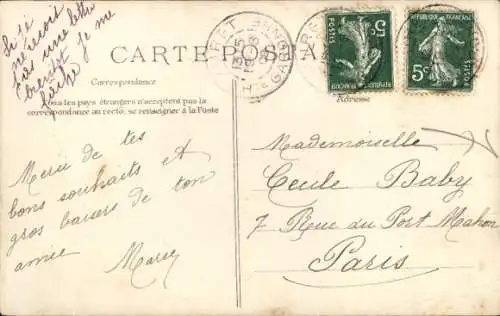 Si je
ne reçois
pas une lettre
bientôt je me
fâche
CARTE POSTALE
Correspondance
Tous les pays étrangers n'acceptent pas la
correspondance au recto, se renseigner à la Poste
Adresse
POSTES
5c
REPUBLIQUE FRANÇAISE
5c
POSTES
REPUBLIQUE FRANÇAISE
Merci de tes
bons souhaits et
gros baisers de ton
amie
Mademoiselle
Baby
7 Rue du Port Mahon
Paris